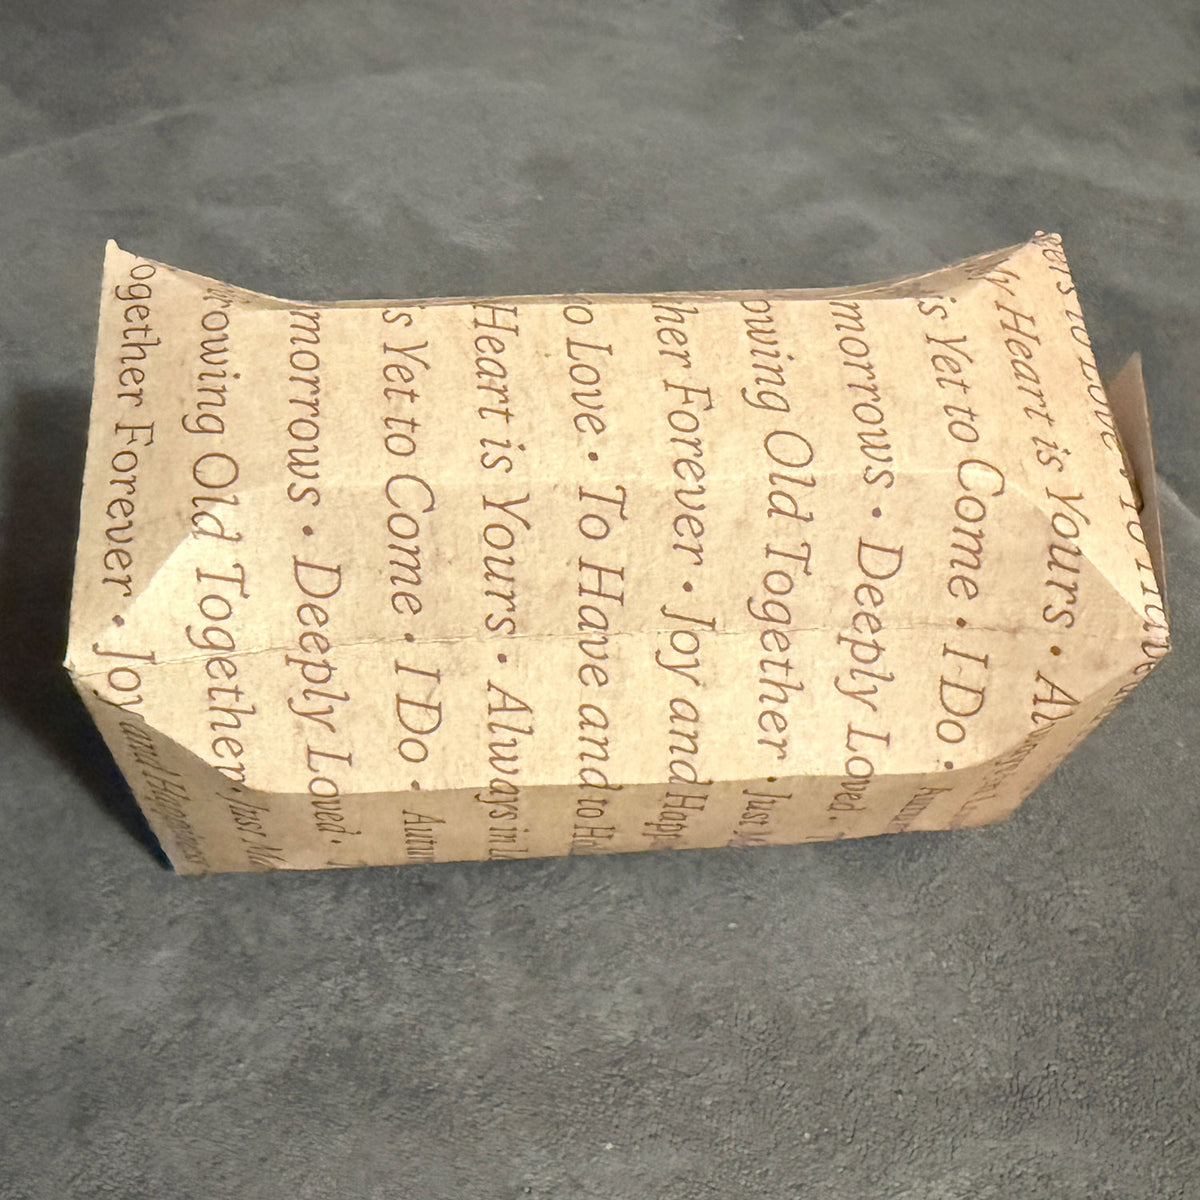 to Love • To Have
My Heart is Yours • Always
is Yet to Come • I Do •
morrows • Deeply Loved •
owing Old Together • Just
her Forever • Joy and Happ
o Love • To Have and to H
Heart is Yours • Always in
is Yet to Come • I Do • Autu
morrows • Deeply Loved •
rowing Old Together • Just Ma
ogether Forever • Joy and Happiness